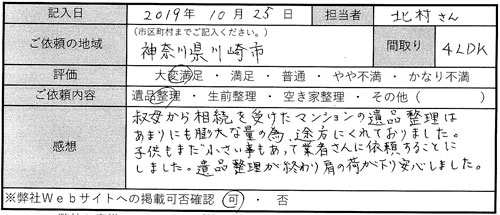 記入日 2019年 10月 25日 担当者 北村さん
ご依頼の地域 (市区町村までご記入ください。) 神奈川県川崎市 間取り 4LDK
評価 大変満足 ・ 満足 ・ 普通 ・ やや不満 ・ かなり不満
ご依頼内容 遺品整理 ・ 生前整理 ・ 空き家整理 ・ その他 ( )
感想
叔母から相続を受けたマンションの遺品整理は
あまりにも膨大な量の為、途方にくれておりました。
子供もまだ小さい事もあって業者さんに依頼することに
しました。遺品整理が終わり肩の荷が下り安心しました。
※弊社Webサイトへの掲載可否確認 可 ・ 否